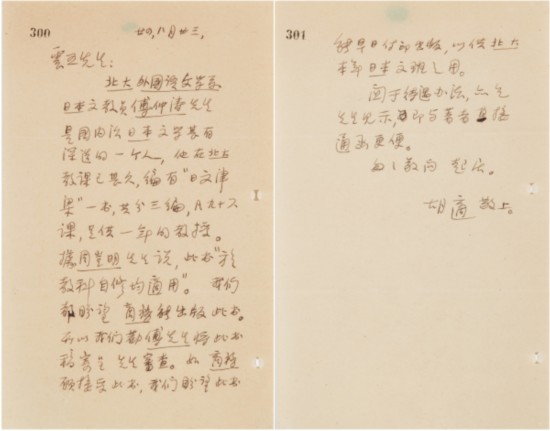 300
廿四,八月廿三,
雲五先生:
北大外國語文學系
日本文教員傅仲濤先生
是國內治日本文學甚有
深造的一个人,他在北大
教課已甚久,編有"日文津
梁"一书,共分三編,凡六十八
課,足供一年的教授。
據周豈明先生说,此书"於
教科自修均適用"。我们
都盼望商務能出版此书。
所以我们勸傅先生将此书
稿寄呈先生審查。如商務
願接受此书,我们盼望此书
301
能早日付印出版,以供北大
本年日本文班之用。
関于待遇办法,亦乞
先生見示,或即与著者直接
通函更便。
匆匆敬问起居。
胡適敬上。